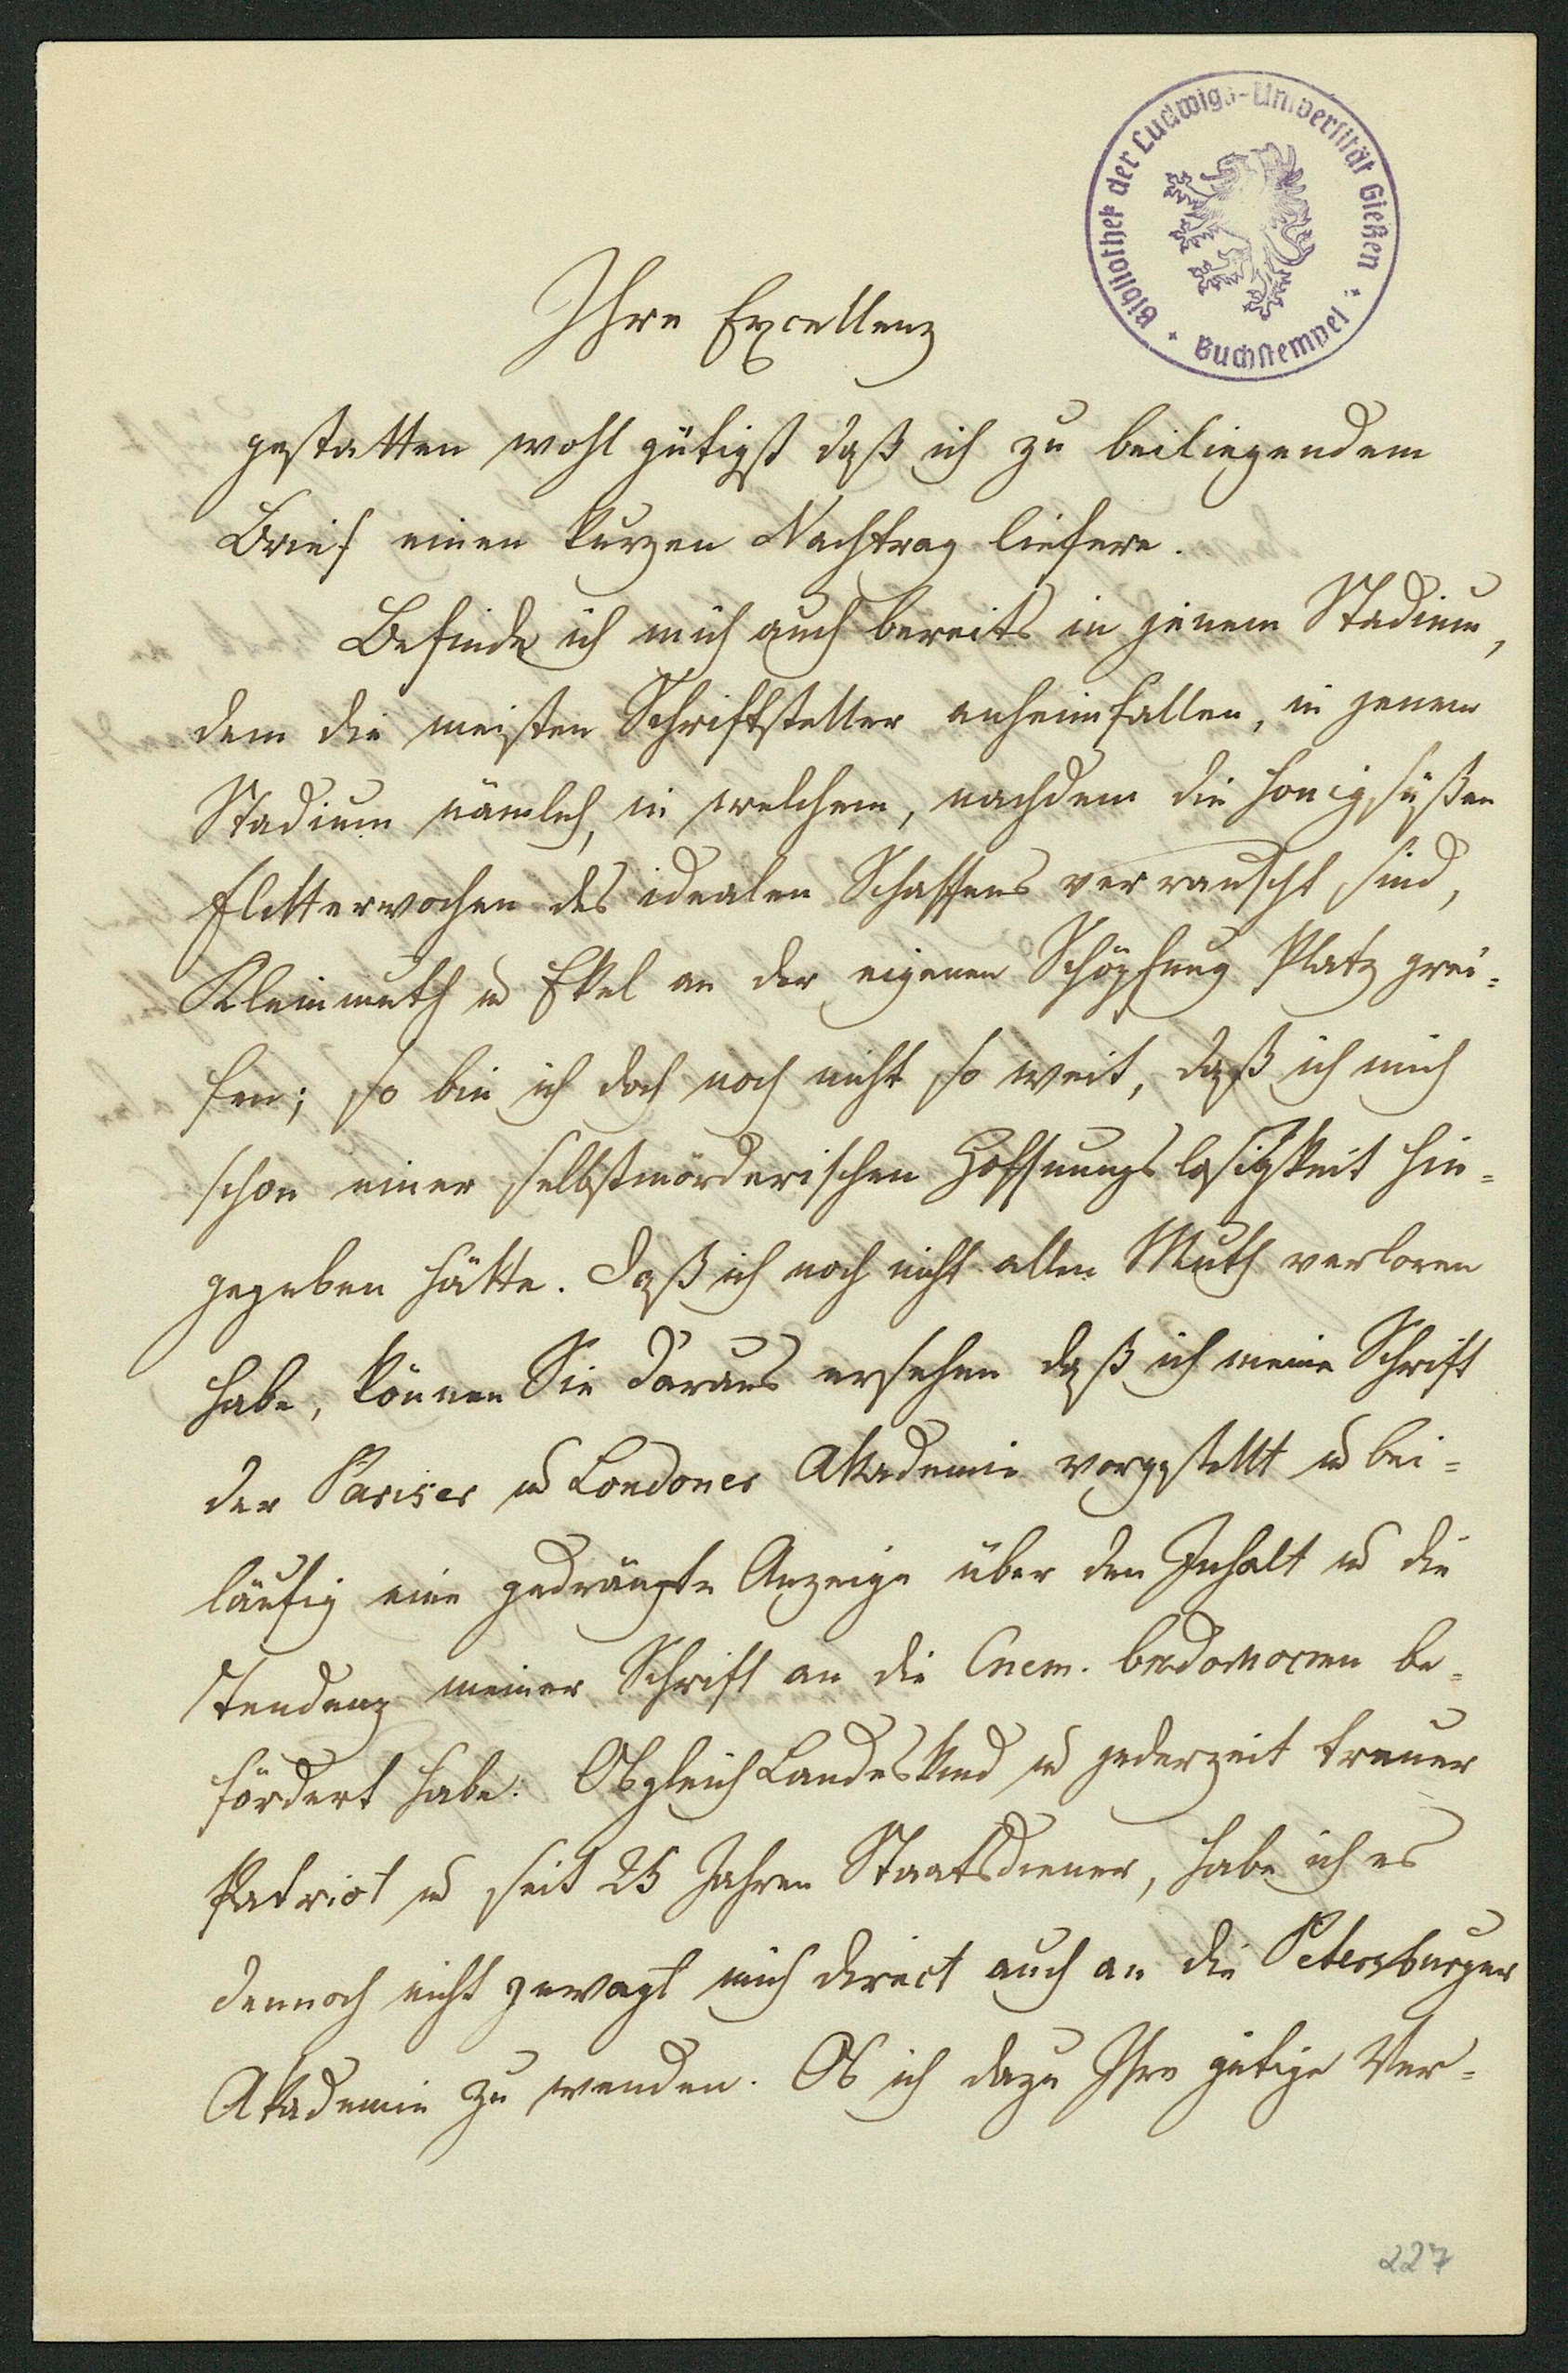 Bibliothek der Ludwigs-Universität Gießen
Buchstempel
Ihre Excellenz
gestatten wohl gütigst daß ich zu beiliegendem
Brief einen kurzen Nachtrag liefere.
Befinde ich mich auch bereits in jenem Stadium,
dem die meisten Schriftsteller anheimfallen, in jenem
Stadium nämlich, in welchem, nachdem die honigsüßen
Flitterwochen des idealen Schaffens verrauscht sind,
Kleinmuth u Ekel an der eigenen Schöpfung Platz grei=
fen; so bin ich doch noch nicht so weit, daß ich mich
schon einer selbstmörderischen Hoffnungslosigkeit hin=
gegeben hätte. Daß ich noch nicht allen Muth verloren
habe, können Sie daraus ersehen daß ich meine Schrift
der Pariser u Londoner Akademie vorgestellt u bei=
läufig eine gedrängte Anzeige über den Inhalt u die
Tendenz meiner Schrift an die вѣдомости be=
fördert habe. Obgleich Landeskind u jederzeit treuer
Patriot u seit 25 Jahren Staatsdiener, habe ich es
dennoch nicht gewagt mich direct auch an die Petersburger
Akademie zu wenden. Ob ich dazu Ihre gütige Ver=
227